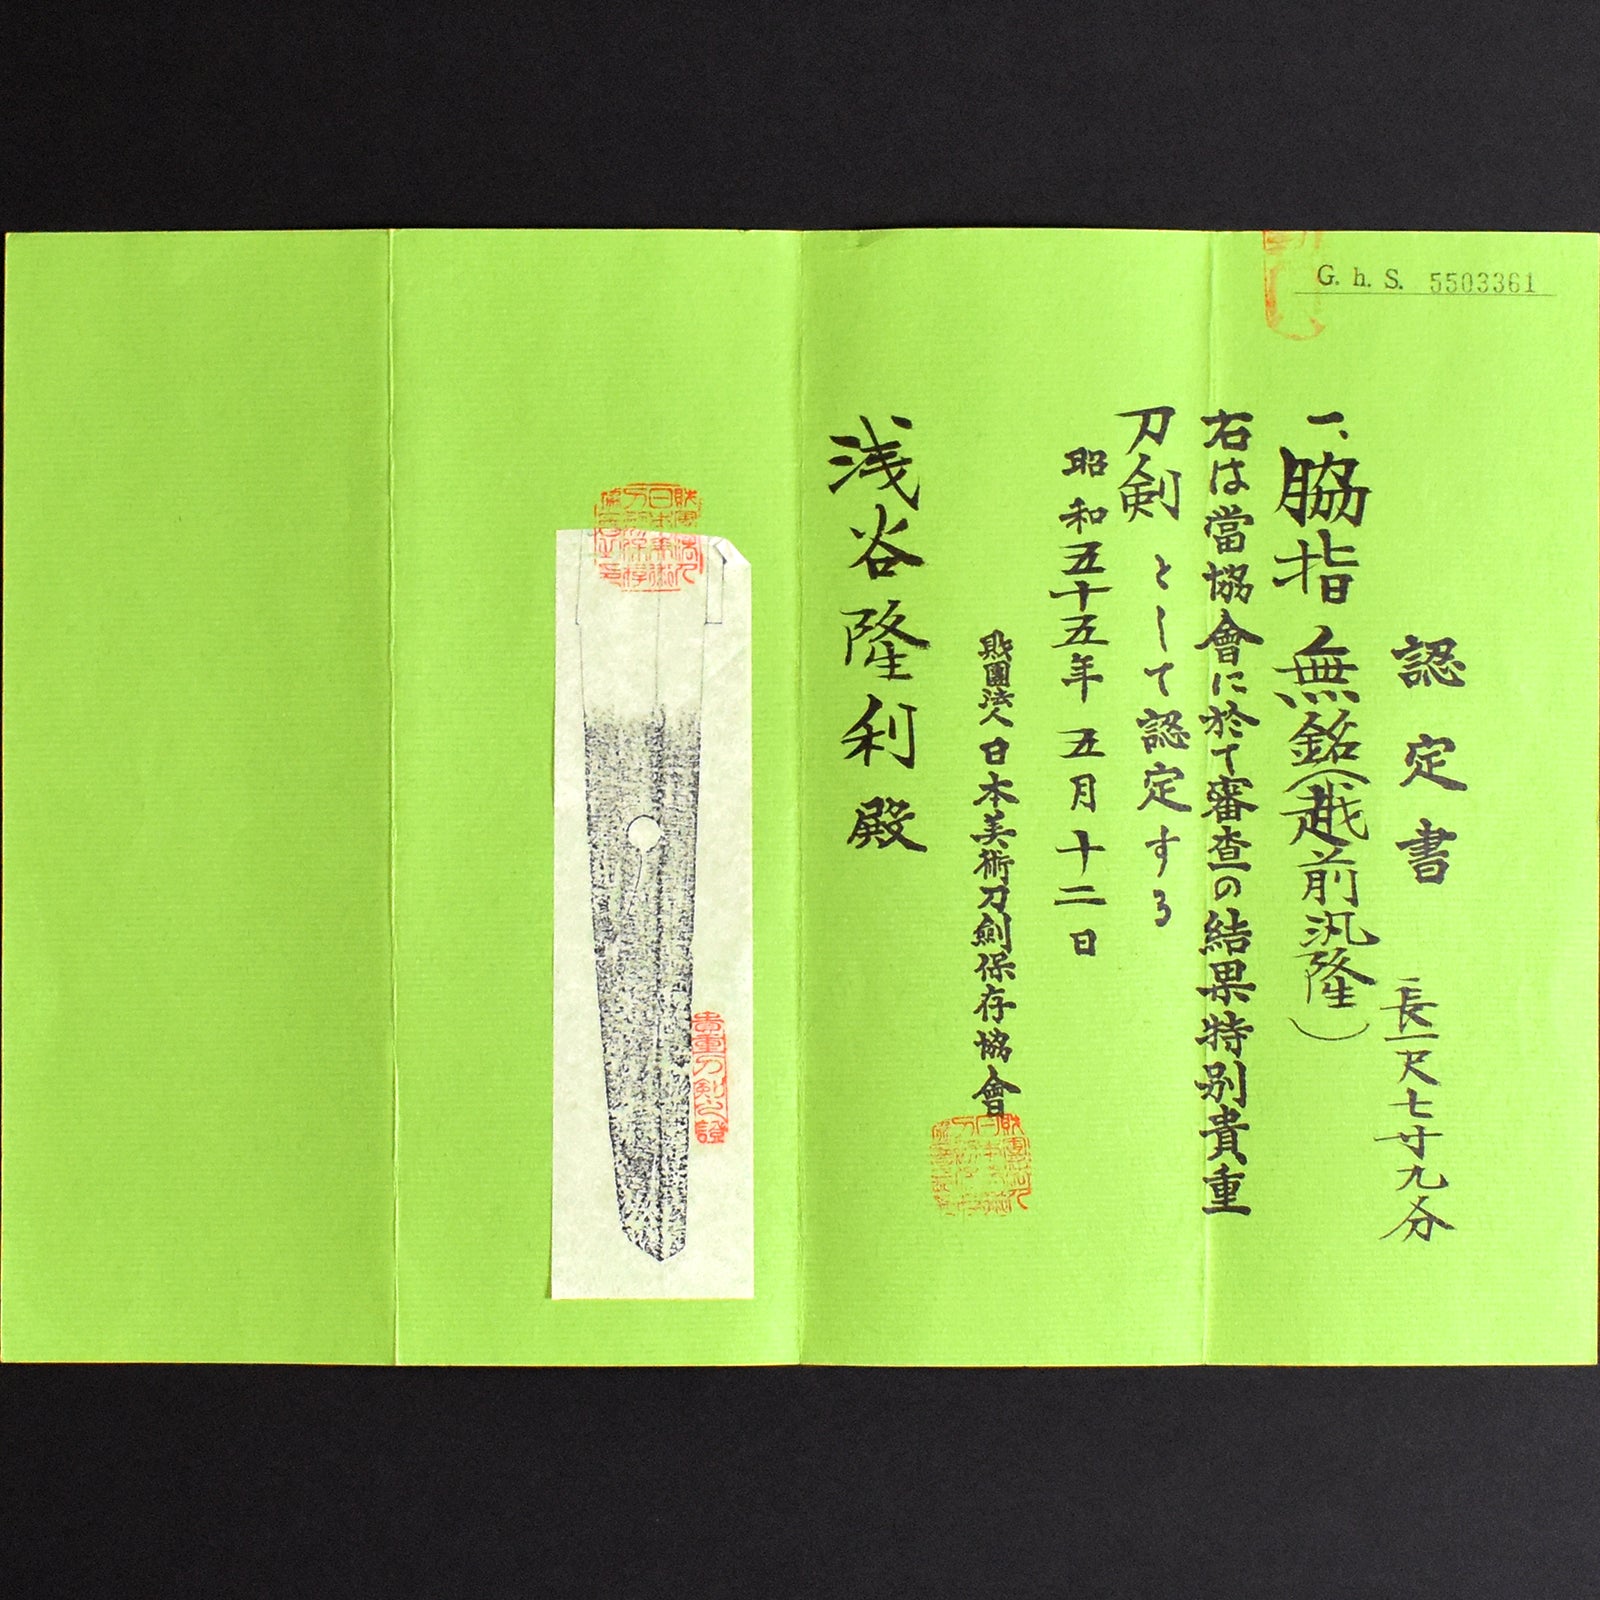 G. h. S. 5503361
認定書
一、脇指 無銘(越前汎隆)
長一尺七寸九分
右は當協會に於て審査の結果特別貴重
刀剣として認定する
昭和五十五年五月十二日
財團法人日本美術刀劍保存協會
浅谷隆利殿
貴重刀剣之證